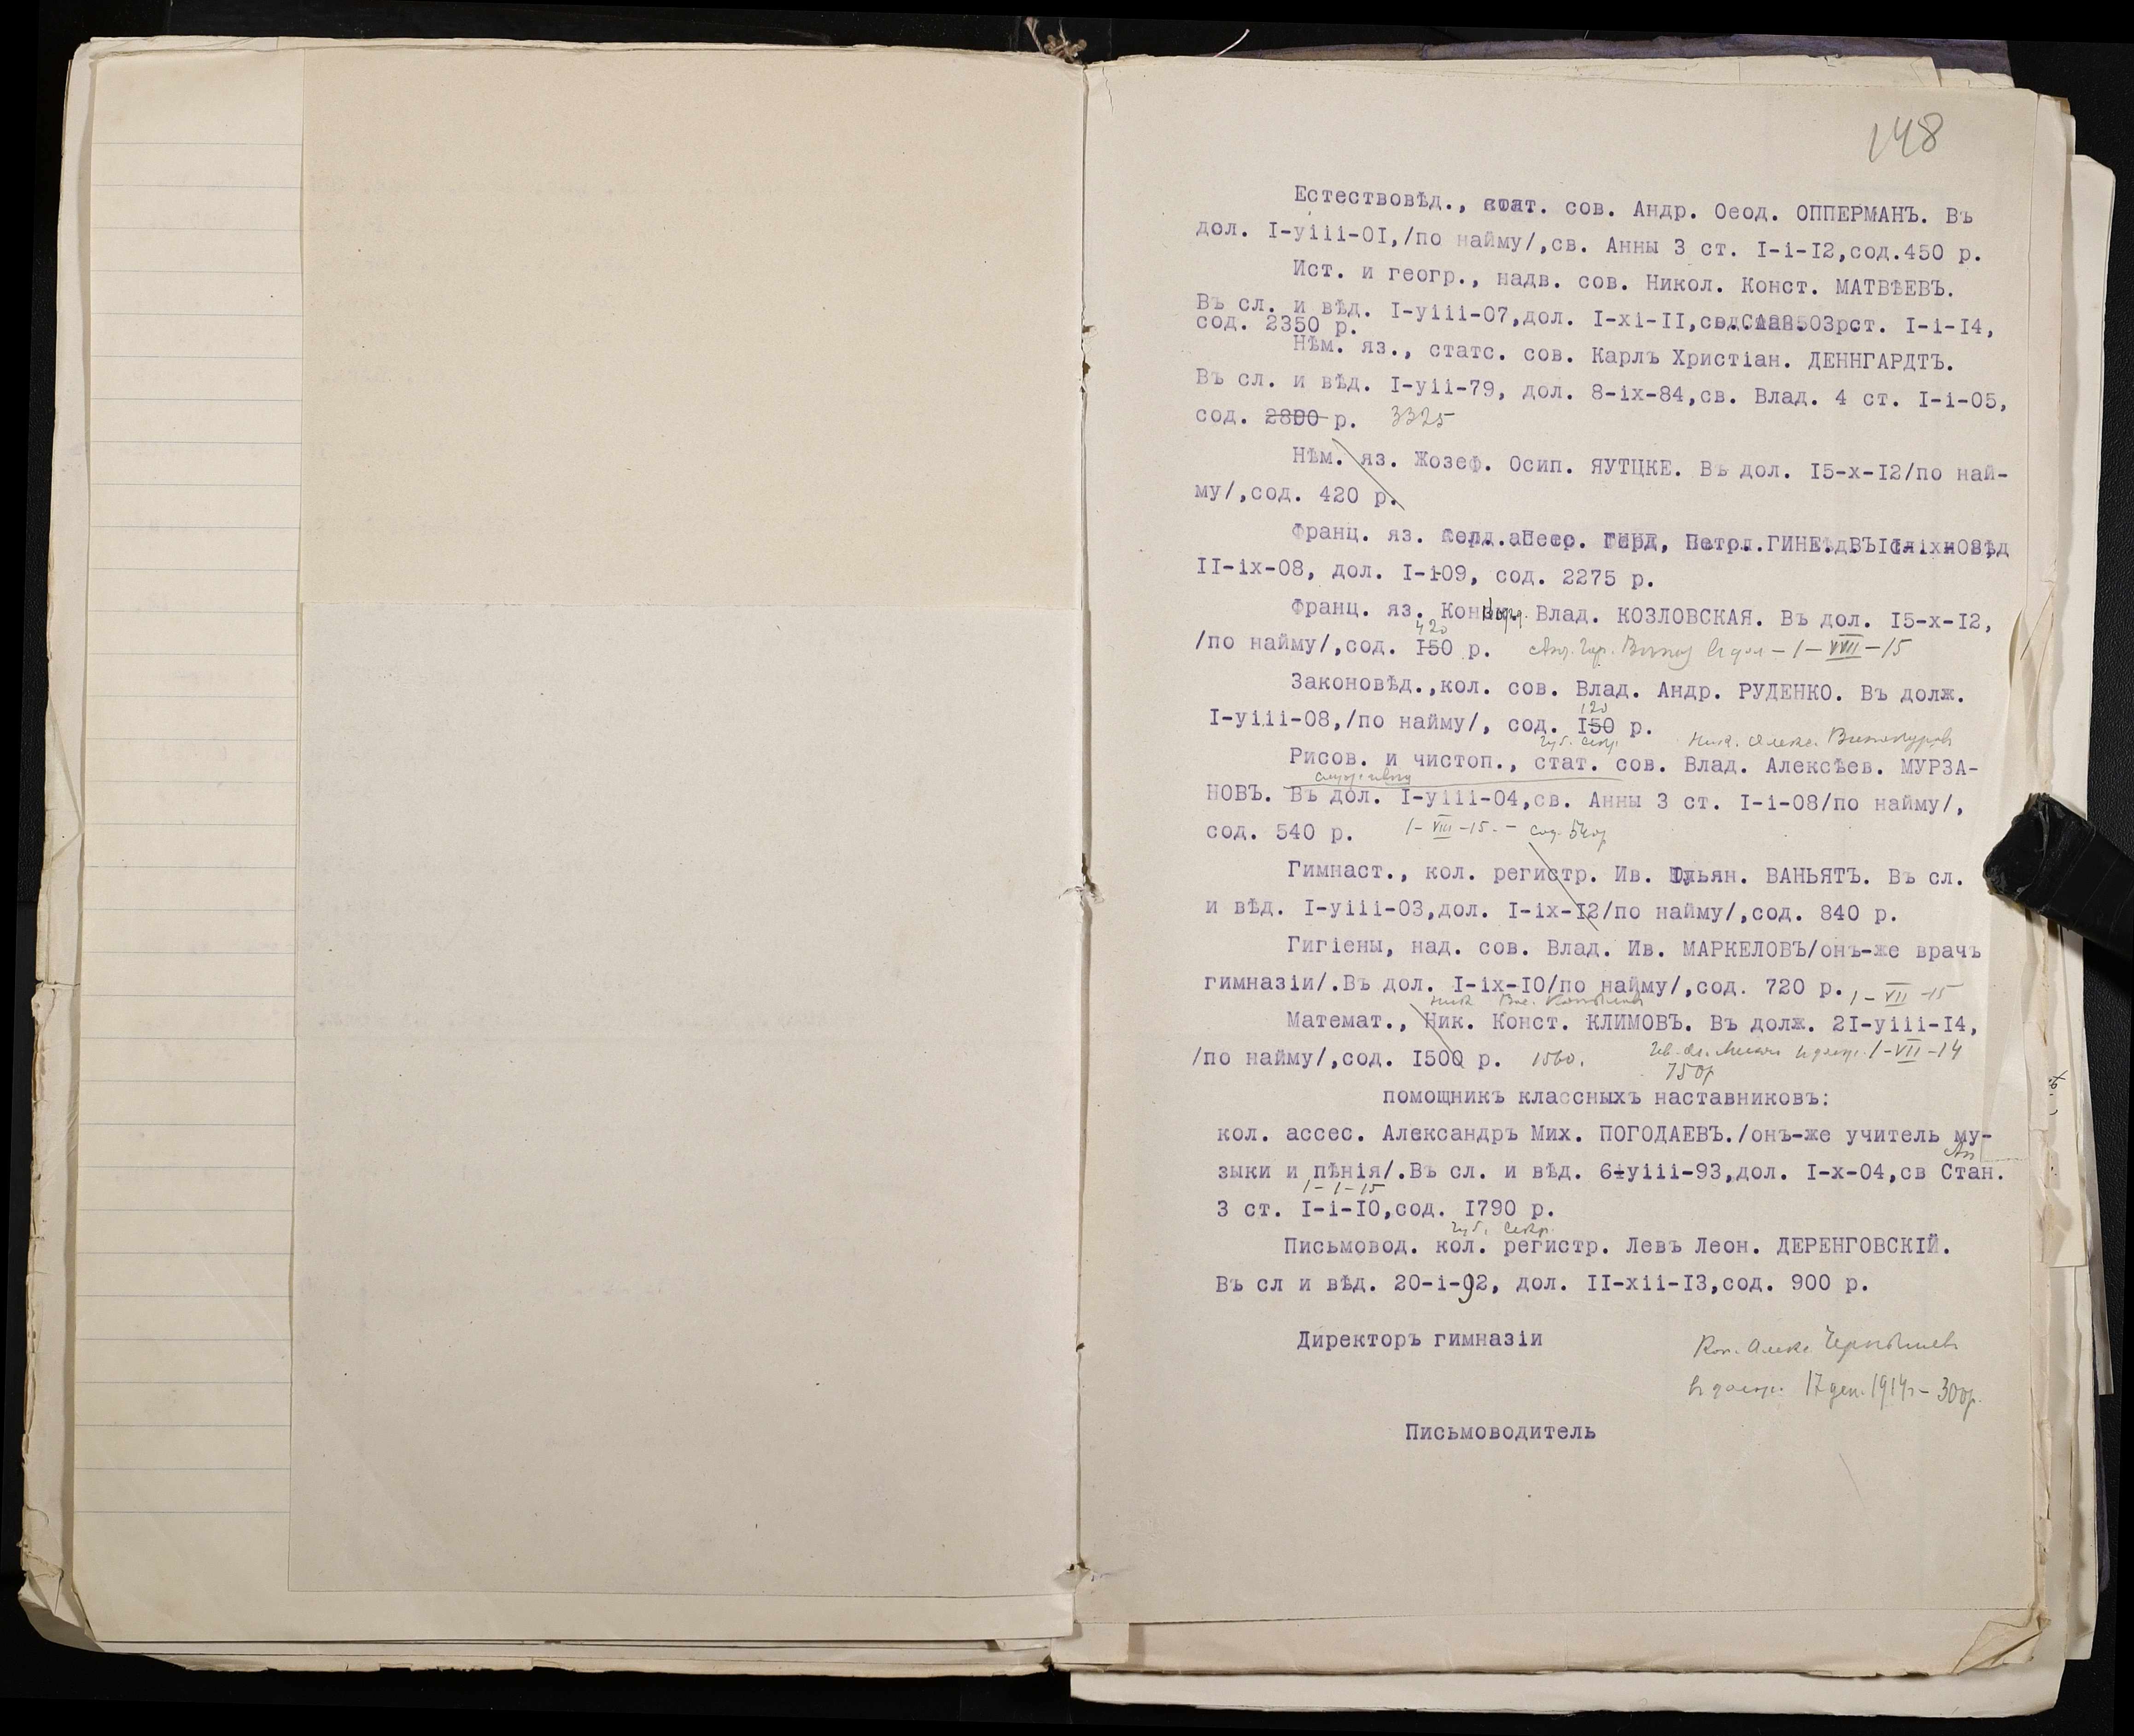 148
Естествовѣд., стат. сов. Андр. Ѳеод. ОППЕРМАНЪ. Въ
дол. I-уiii-0I,/по найму/,св. Анны 3 ст. I-i-I2,сод.450 р.
Ист. и геогр., надв. сов. Никол. Конст. МАТВѢЕВЪ.
Въ сл. и вѣд. I-уiii-07,дол. I-xi-II, ст. I-i-I4,
сод. 2350 р.
Нѣм. яз., статс. сов. Карлъ Христiан. ДЕННГАРДТЪ.
Въ сл. и вѣд. I-уii-79, дол. 8-ix-84,св. Влад. 4 ст. I-i-05,
сод. р. 3325
Нѣм. яз. Жозеф. Осип. ЯУТЦКЕ. Въ дол. I5-x-I2/по най-
му/,сод. 420 р.
Франц. яз.
II-ix-08, дол. I-i-09, сод. 2275 р.
Франц. яз. Влад. КОЗЛОВСКАЯ. Въ дол. I5-x-I2,
420
/по найму/,сод. I50 р. 1-VIII-15
Законовѣд.,кол. сов. Влад. Андр. РУДЕНКО. Въ долж.
120
I-уiii-08,/по найму/, сод. I50 р.
губ. секр. Ник. Алекс. Винокуровъ
Рисов. и чистоп., стат. сов. Влад. Алексѣев. МУРЗА-
НОВЪ. Въ дол. I-уiii-04,св. Анны 3 ст. I-i-08/по найму/,
сод. 540 р. 1-VIII-15.- сод. 540р
Гимнаст., кол. регистр. Ив. Юльян. ВАНЬЯТЪ. Въ сл.
и вѣд. I-уiii-03,дол. I-ix-I2/по найму/,сод. 840 р.
Гигiены, над. сов. Влад. Ив. МАРКЕЛОВЪ/онъ-же врачъ
гимназiи/.Въ дол. I-ix-I0/по найму/,сод. 720 р. 1-VII-15
Математ., Ник. Конст. КЛИМОВЪ. Въ долж. 2I-уiii-I4,
/по найму/,сод. I500 р. 1560. 1-VII-14
750р
помощникъ классныхъ наставниковъ:
кол. ассес. Александръ Мих. ПОГОДАЕВЪ./онъ-же учитель му-
Ан
зыки и пѣнiя/.Въ сл. и вѣд. 6-уiii-93,дол. I-x-04,св Стан.
1-1-15
3 ст. I-i-I0,сод. I790 р.
губ. секр.
Письмовод. кол. регистр. Левъ Леон. ДЕРЕНГОВСКIЙ.
Въ сл и вѣд. 20-i-92, дол. II-xii-I3,сод. 900 р.
Директоръ гимназiи
Кон. Алекс Чернышевъ
въ долж. 17 дек. 1914г - 300р.
Письмоводитель